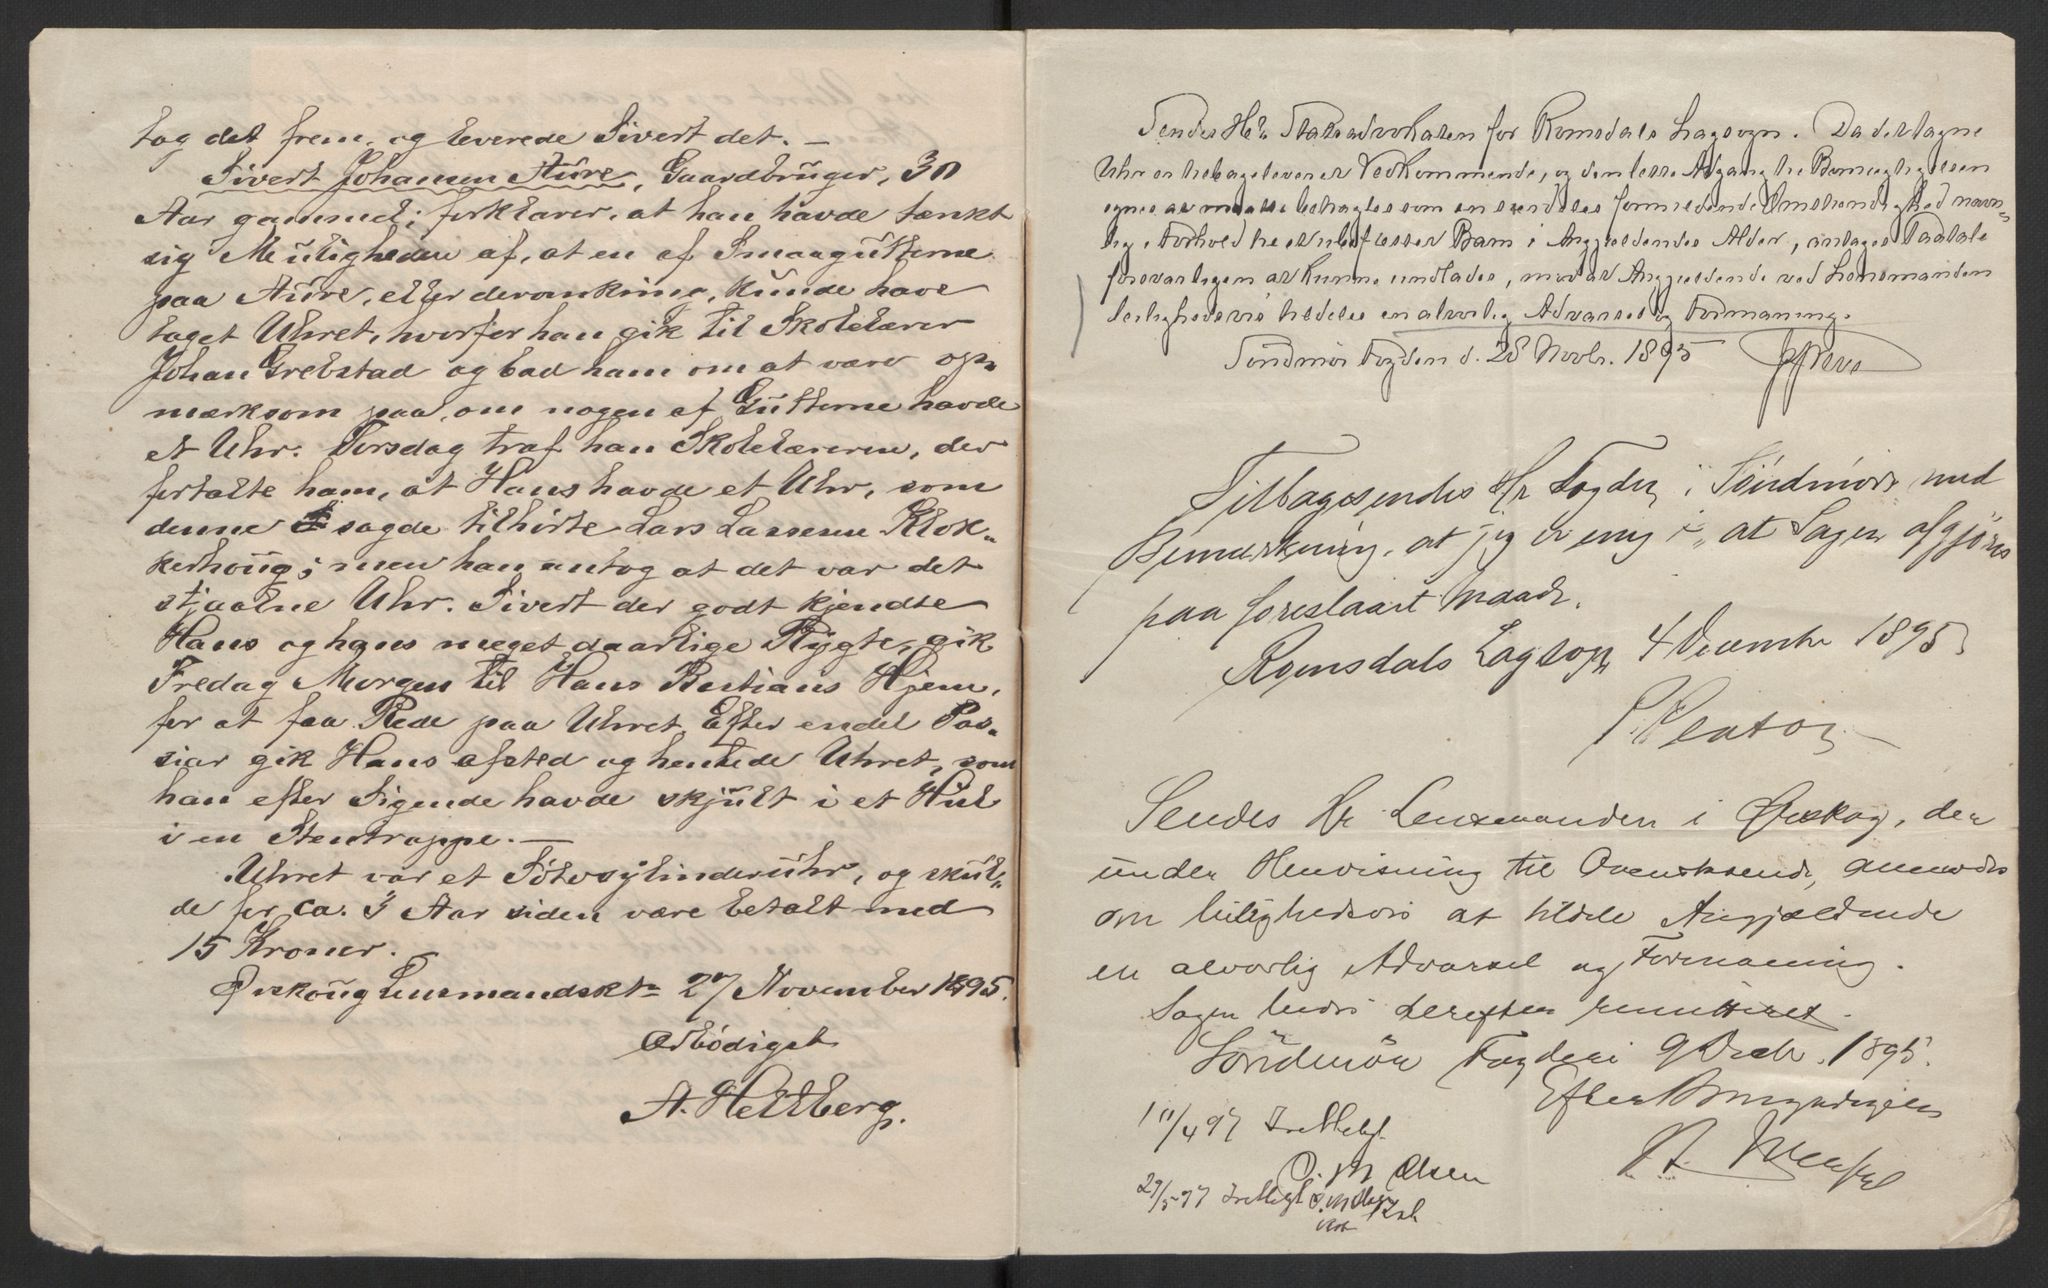 tog det frem, og leverede Sivert det. —
Sivert Johansen Aure, Gaardbruger, 30
Aar gammel; forklarer, at han havde tænkt
sig Muligheden af, at en af Smaagutterne
paa Aure, efter devankring, kunde have
taget Uhret, hvorfor han gik til Skolelærer
Johan Grebstad og bad ham om at være op-
mærksom paa, om nogen af Gutterne havde
et Uhr. Torsdag traf han Skolelæreren, der
fortalte ham, at Hans havde et Uhr, som
denne sagde tilhørte Lars Larsen Klok-
kerhoug; men han antog at det var det
stjaalne Uhr. Sivert der godt kjendte
Hans og hans meget daarlige Rygte, gik
Fredag Morgen til Hans Bastians Hjem,
for at faa Rede paa Uhret. Efter endel Pas-
siar gik Hans afsted og hentede Uhret, som
han efter Sigende havde skjult i et Hul
i en Stentrappe. —
Uhret var et Sølvsylinderuhr, og skul-
de for ca. 3 Aar siden være betalt med
15 Kroner.
Ørskoug Lensmandskt. 27 November 1895.
Ærbødigst
A. Hellberg.
Sendes Hr. Statsadvokaten for Romsdals Lagsogn. Da det tagne
Uhr er tilbageleveret Vedkommende, og den lette Adgang til Bemægtigelsen
synes at maatte betragtes som en særdeles formildende Omstændighed navn-
lig i Forhold til et ubefæstet Barn i Angjældendes Alder, antages Paatale
forsvarligen at kunne undlades, mod at Angjældende ved Lensmanden
leilighedsvis tildeles en alvorlig Advarsel og Formaning.
Søndmør Fogderi d. 28 Novbr. 1895
Tilbagesendes Hr Fogden i Søndmør med
Bemærkning, at jeg er enig i, at Sagen afgjøres
paa foreslaaet Maade.
Romsdals Lagsogn 4 December 1895
Sendes Hr Lensmanden i Ørskog, der
under Henvisning til Ovenstaaende, anmodes
om leilighedsvis at tildele Angjældende
en alvorlig Advarsel og Formaning.
Sagen bedes derefter remitteret.
Søndmør Fogderi 9 Decbr. 1895.
Efter Bemyndigelse
10/4 97
O. M Olsen
29/5 97